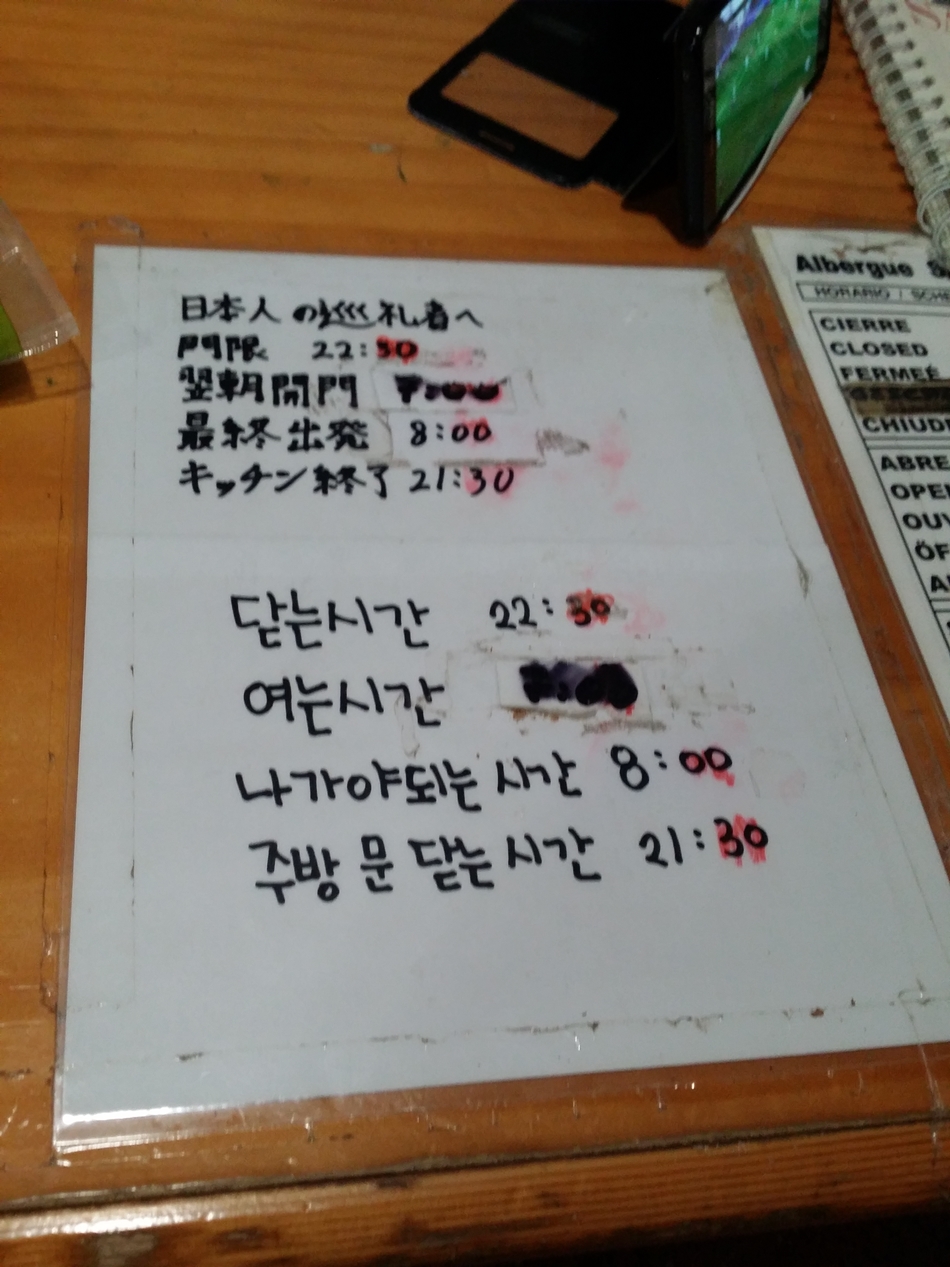 日本人の巡礼者へ
門限 22:30
翌朝開門
最終出発 8:00
キッチン終了 21:30
닫는시간 22:30
여는시간
나가야되는 시간 8:00
주방 문 닫는 시간 21:30
Albergue
HORARIO /
CIERRE
CLOSED
FERMEÉ